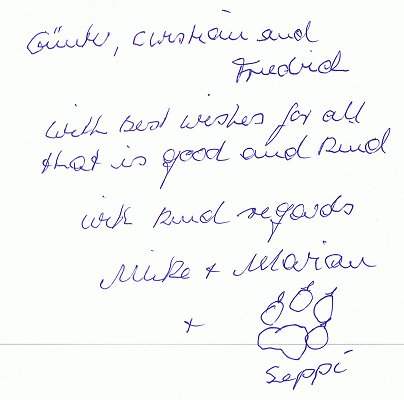 Günter, Christian and
Friedrich
with best wishes for all
that is good and kind
with kind regards
Mike + Marian
+
Seppi